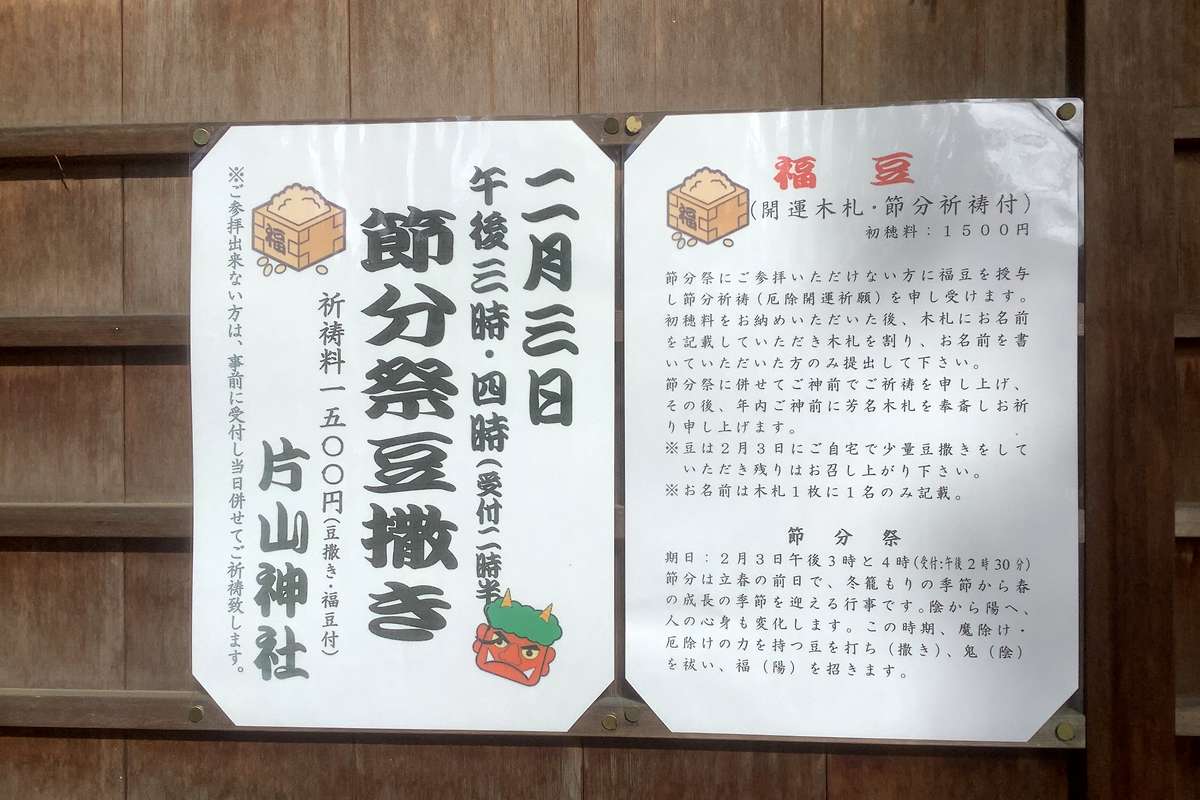 二月三日
午後三時・四時(受付二時半)
節分祭豆撒き
祈祷料一五〇〇円(豆撒き・福豆付)
片山神社
※ご参拝出来ない方は、事前に受付し当日併せてご祈祷致します。
福
福豆
(開運木札・節分祈祷付)
初穂料：１５００円
福
節分祭にご参拝いただけない方に福豆を授与
し節分祈祷(厄除開運祈願)を申し受けます。
初穂料をお納めいただいた後、木札にお名前
を記載していただき木札を割り、お名前を書
いていただいた方のみ提出して下さい。
節分祭に併せてご神前でご祈祷を申し上げ、
その後、年内ご神前に芳名木札を奉斎しお祈
り申し上げます。
※豆は２月３日にご自宅で少量豆撒きをして
いただき残りはお召し上がり下さい。
※お名前は木札１枚に１名のみ記載。
節分祭
期日：２月３日午後３時と４時(受付:午後２時30分)
節分は立春の前日で、冬籠もりの季節から春
の成長の季節を迎える行事です。陰から陽へ、
人の心身も変化します。この時期、魔除け・
厄除けの力を持つ豆を打ち（撒き）、鬼（陰）
を祓い、福（陽）を招きます。